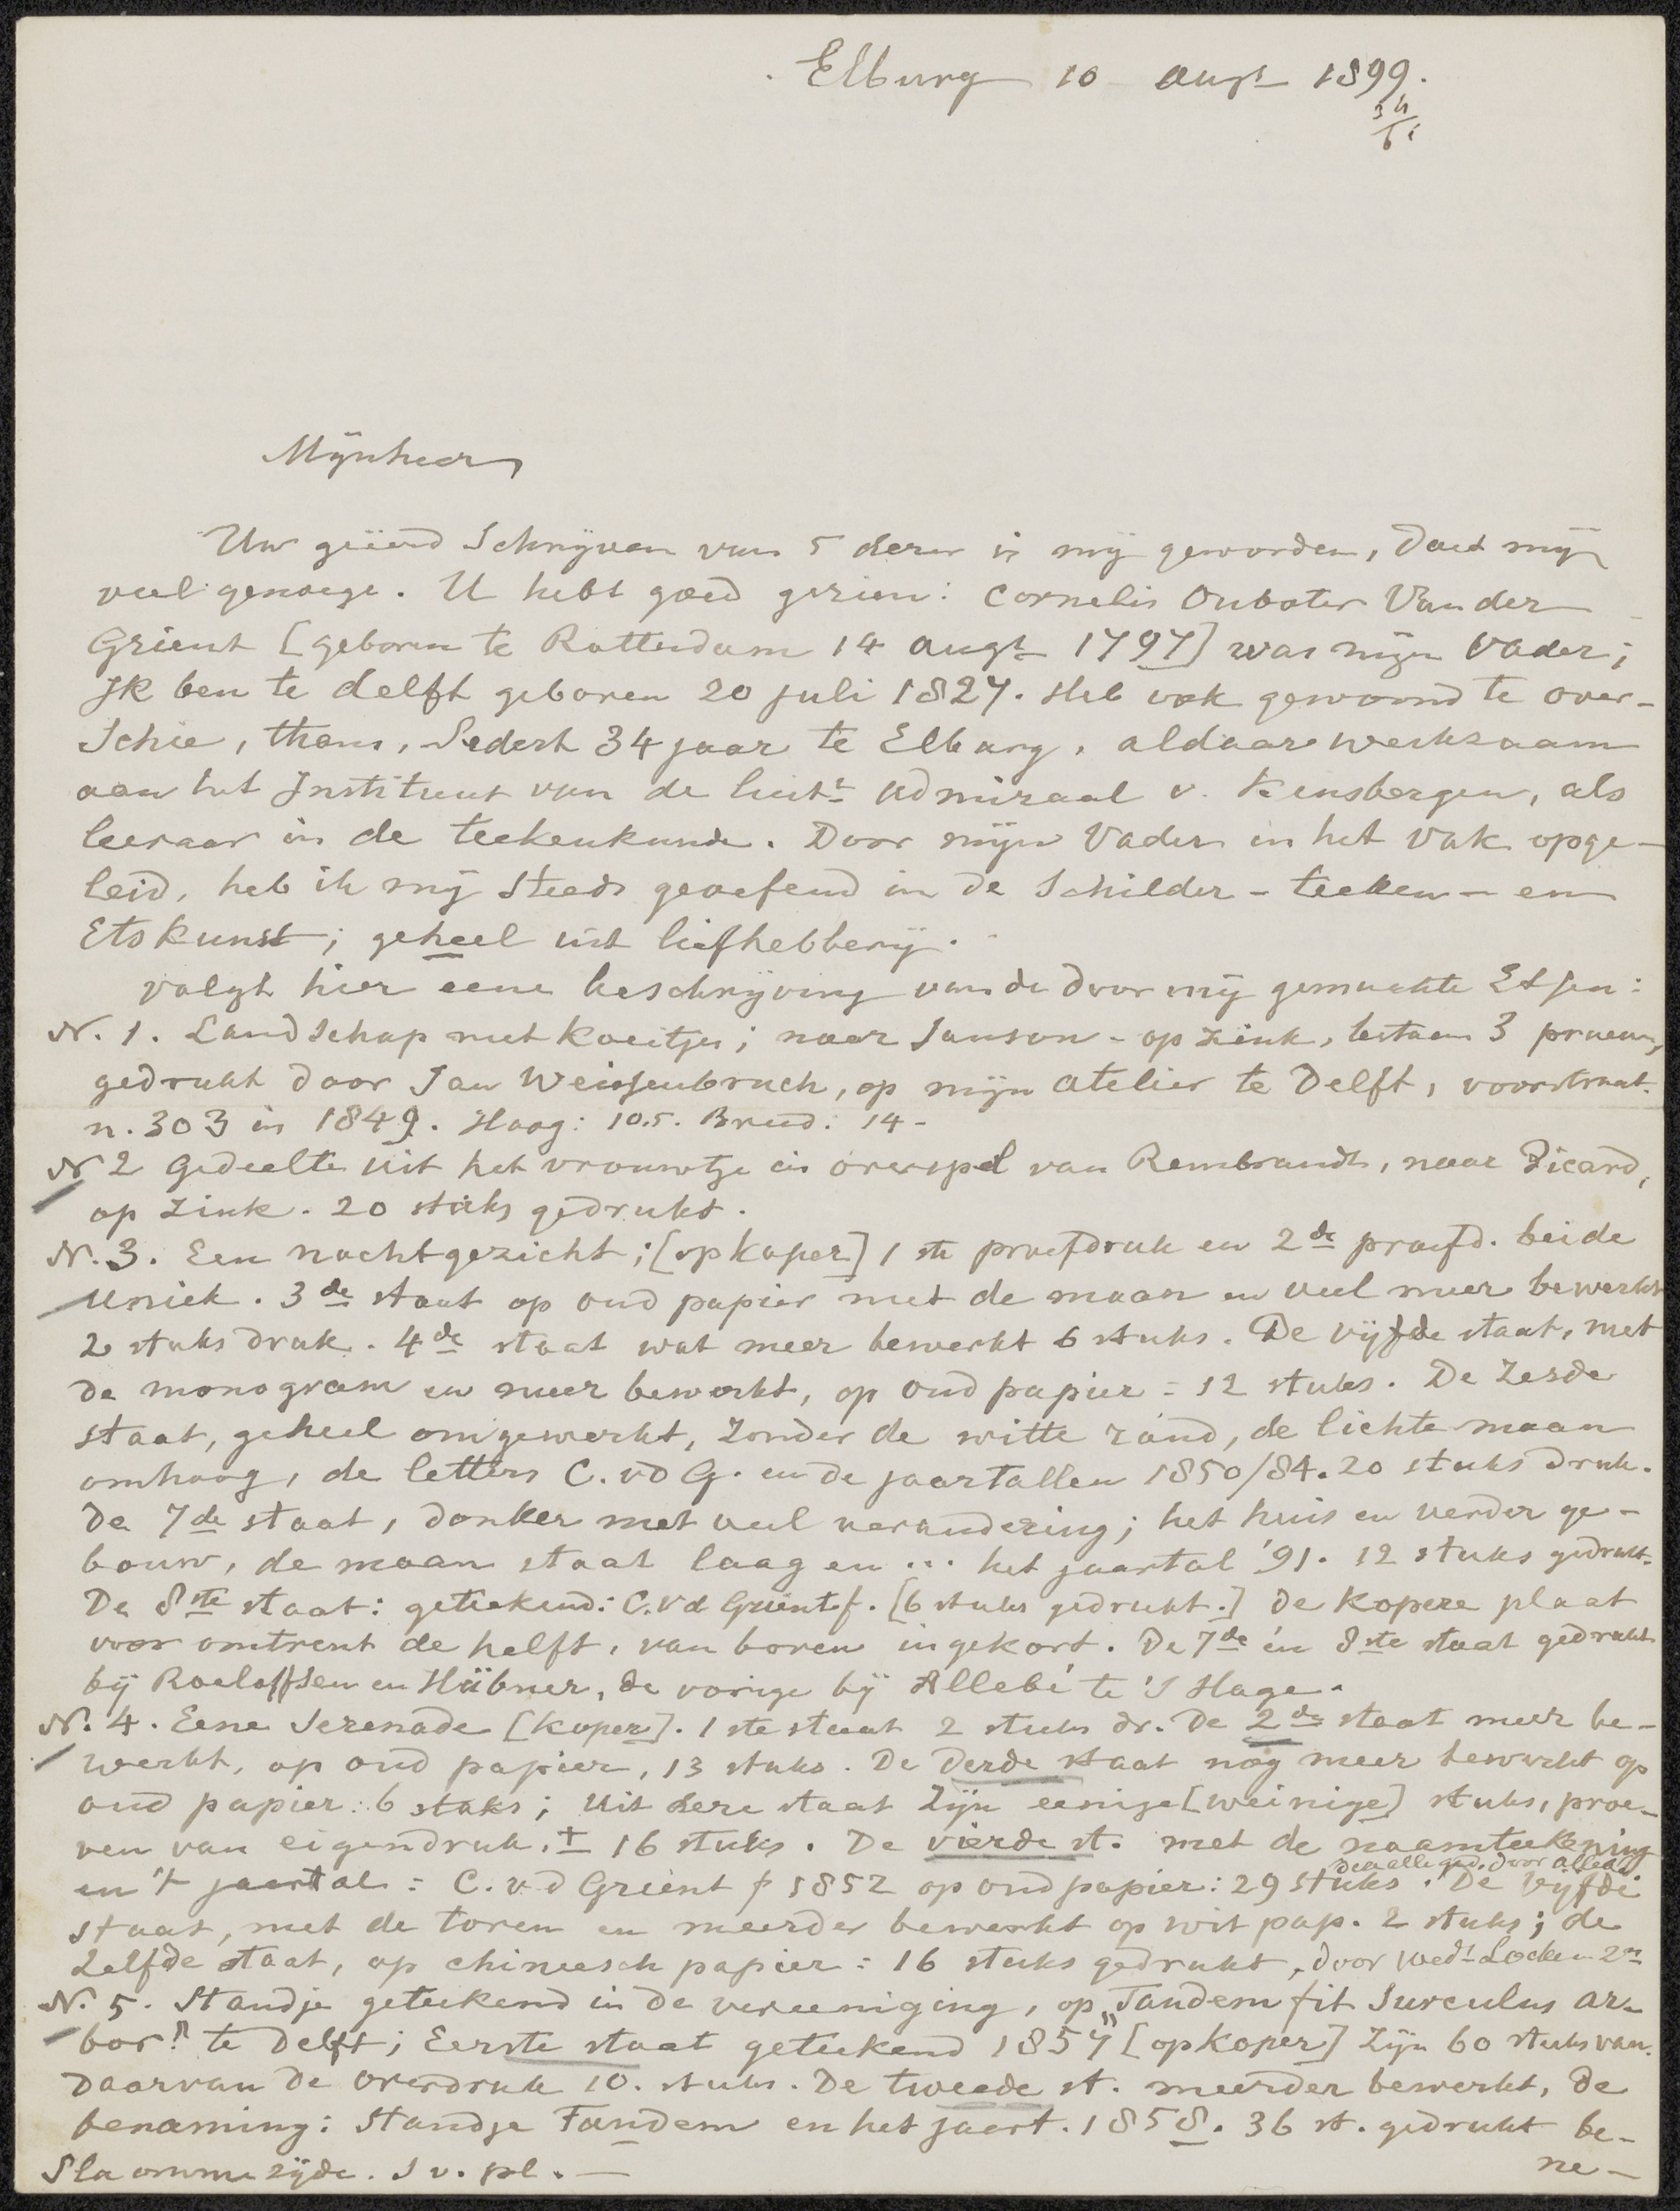 Elburg 10 augt 1899.
Mijnheer
Uw geëerd Schrijven van 5 dezer is mij geworden, doet mij
veel genoege. U hebt goed gezien: Cornelis Ouboter Van der
Grient [geboren te Rotterdam 14 augt 1797] was mijn Vader;
Ik ben te delft geboren 20 juli 1827. Heb ook gewoond te over-
Schie, thans, Sedert 34 jaar te Elburg, aldaar werkzaam
aan het Instituut van de luitt admiraal v. Kinsbergen, als
leeraar in de teekenkunde. Door mijn Vader in het Vak opge-
leid, heb ik mij Steeds geoefend in de Schilder - teeken - en
Etskunst; geheel uit liefhebberij.
volgt hier eene beschrijving van de door mij gemaakte Etsen:
N. 1. Landschap met koeitjes; naar Janson - op zink, bestaan 3 proeven,
gedrukt door Jan Weissenbruch, op mijn atelier te Delft, voorstraat.
n. 303 in 1849. Hoog: 10.5. Breed: 14-
N 2 Gedeelte uit het vrouwtje in overspel van Rembrandt, naar Picard,
op Zink. 20 stuks gedrukt.
N. 3. Een nachtgezicht; [op koper] 1 ste proefdruk en 2de proefd. beide
Uniek. 3de staat op oud papier met de maan en veel meer bewerkt
2 stuks druk. 4de staat wat meer bewerkt 6 stuks. De vijfde staat, met
de monogram en meer bewerkt, op oud papier = 12 stuks. De Zesde
staat, geheel omgewerkt, zonder de witte rand, de lichte maan
omhoog, de letters C. vd G. en de jaartallen 1850/84. 20 stuks druk.
De 7de staat, donker met veel verandering; het huis en verder ge-
bouw, de maan staat laag en ... het jaartal '91. 12 stuks gedrukt.
De 8ste staat: geteekend: C. vd Grient f. [6 stuks gedrukt.] de kopere plaat
voor omtrent de helft, van boven ingekort. De 7de én 8ste staat gedrukt
bij Roeloffsen en Hübner, de vorige bij Allebé te 'S Hage.
N. 4. Eene Serenade [koper]. 1 ste staat 2 stuks dr. De 2de staat meer be-
werkt, op oud papier, 13 stuks. De derde staat nog meer bewerkt op
oud papier: 6 stuks; uit deze staat zijn eenige [weinige] stuks, proe-
ven van eigendruk. ± 16 stuks. De vierde st. met de naamteekening
en 't jaartal = C. v d Grient f 1852 op oud papier: 29 stuks. De vijfde
staat, met de toren en meerder bewerkt op wit pap. 2 stuks; de
Zelfde staat, op chineesch papier = 16 stuks gedrukt, door
N. 5. Standje geteekend in de vereeniging, op "Tandem fit Surculus ar-
bor" te Delft; Eerste staat geteekend 1857 [op koper] zijn 60 stuks van.
Daarvan de overdruk 10. stuks. De tweede st. meerder bewerkt, de
benaming: Standje Tandem en het jaart. 1858. 36 st. gedrukt be-
ne-
Sla omme zijde. S v. pl. —